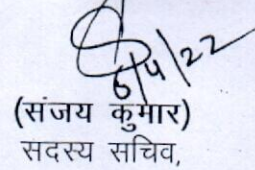 6/4/22
(संजय कुमार)
सदस्य सचिव,